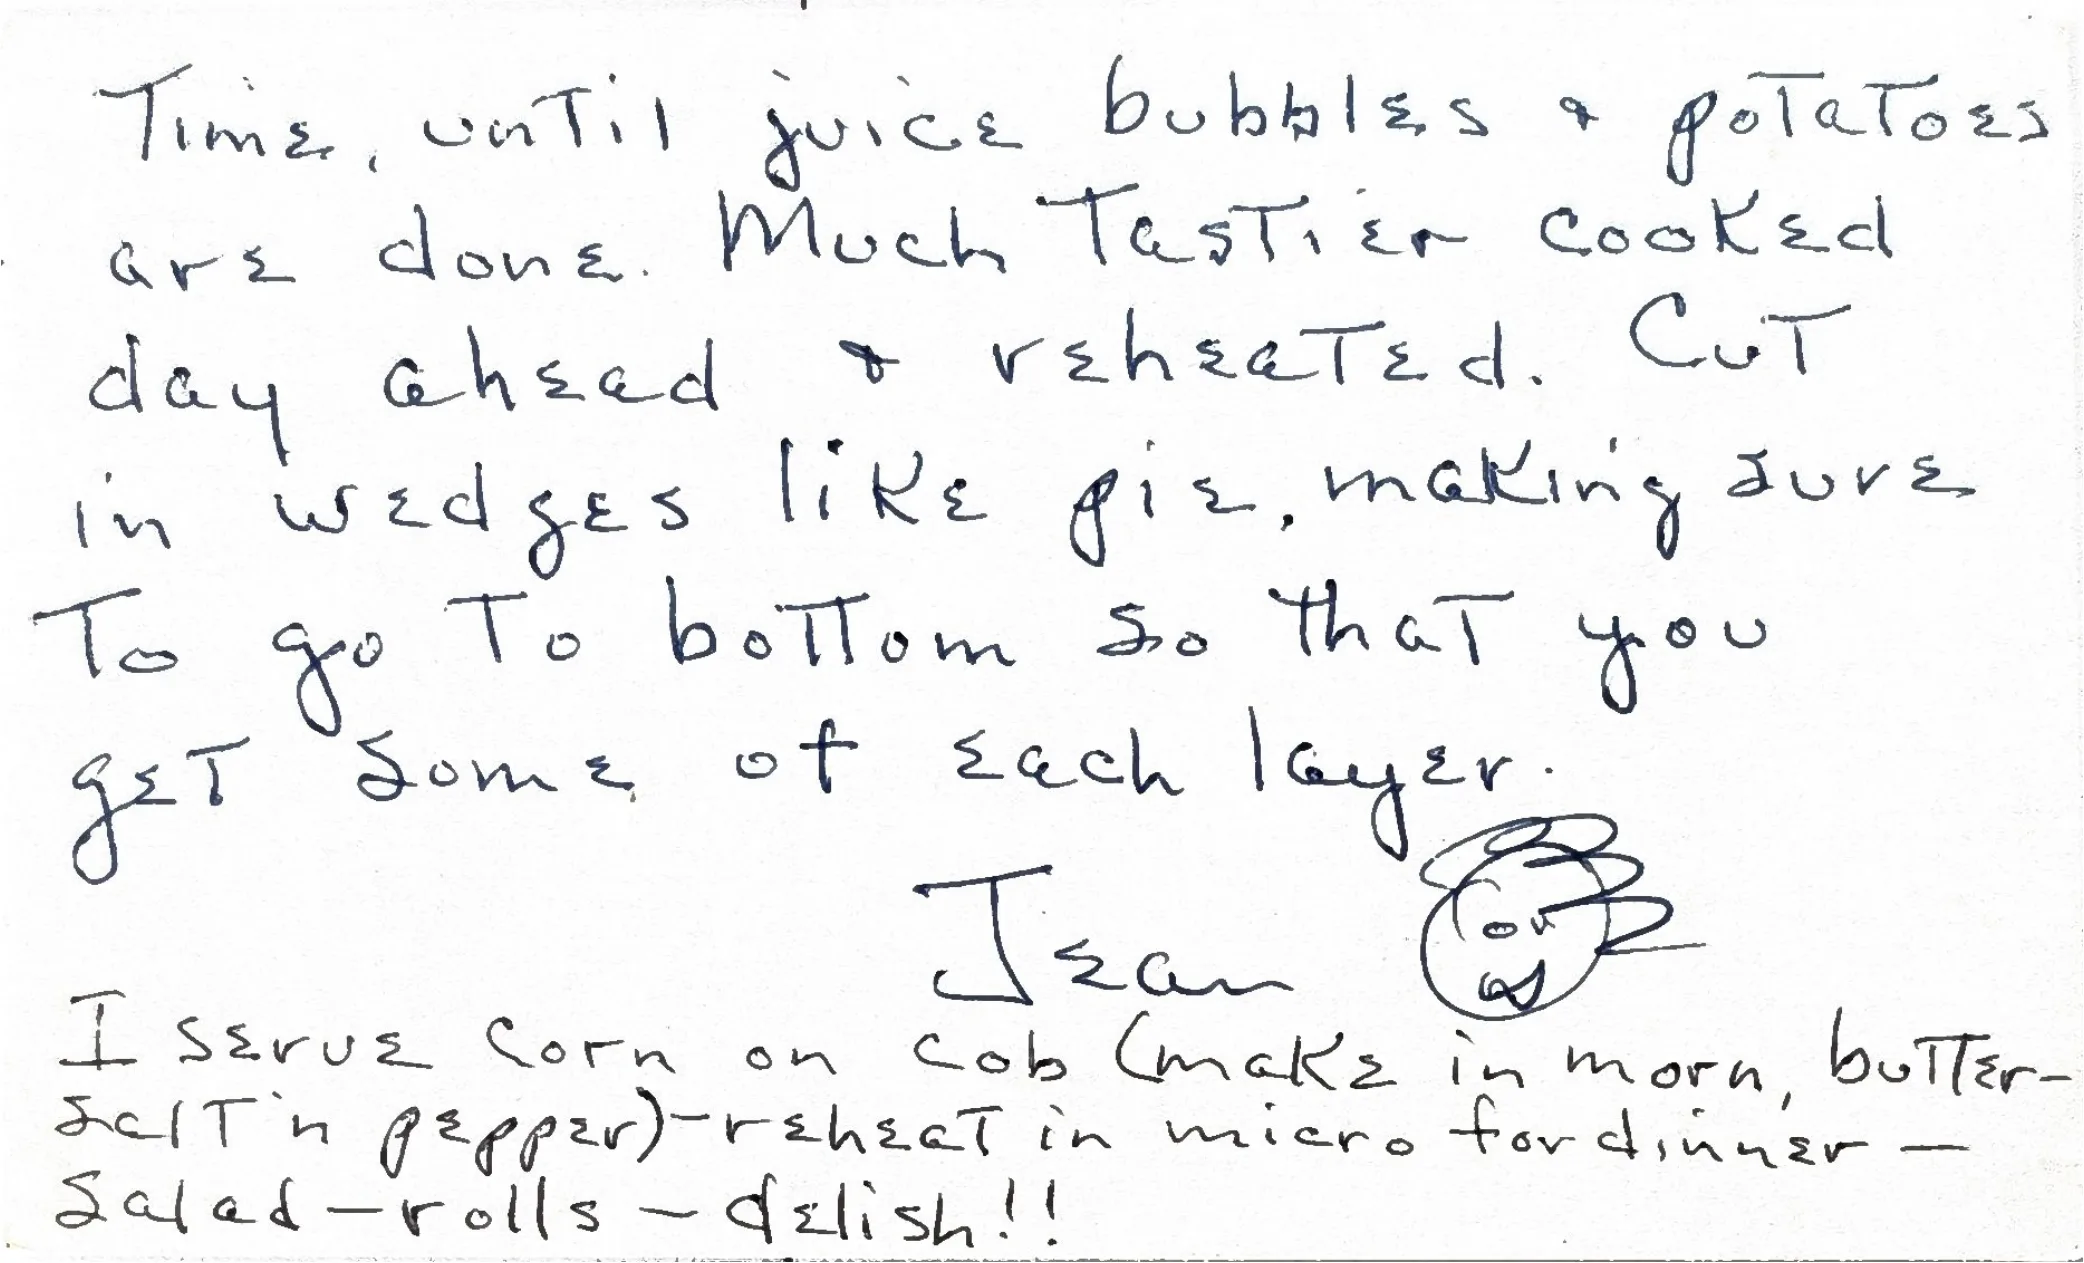 Time, until juice bubbles & potatoes
are done. Much tastier cooked
day ahead & reheated. Cut
in wedges like pie, making sure
to go to bottom so that you
get some of each layer.
Jean
I serve corn on cob (make in morn, butter-
salt 'n pepper)-reheat in micro for dinner -
Salad - rolls - delish!!